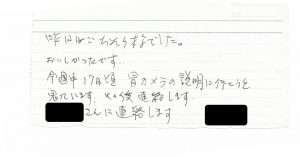 昨日はごちそうさまでした。
おいしかったです。
今週中17日頃 胃カメラの説明に行こうと
思っています。その後連絡します。
さんに連絡します